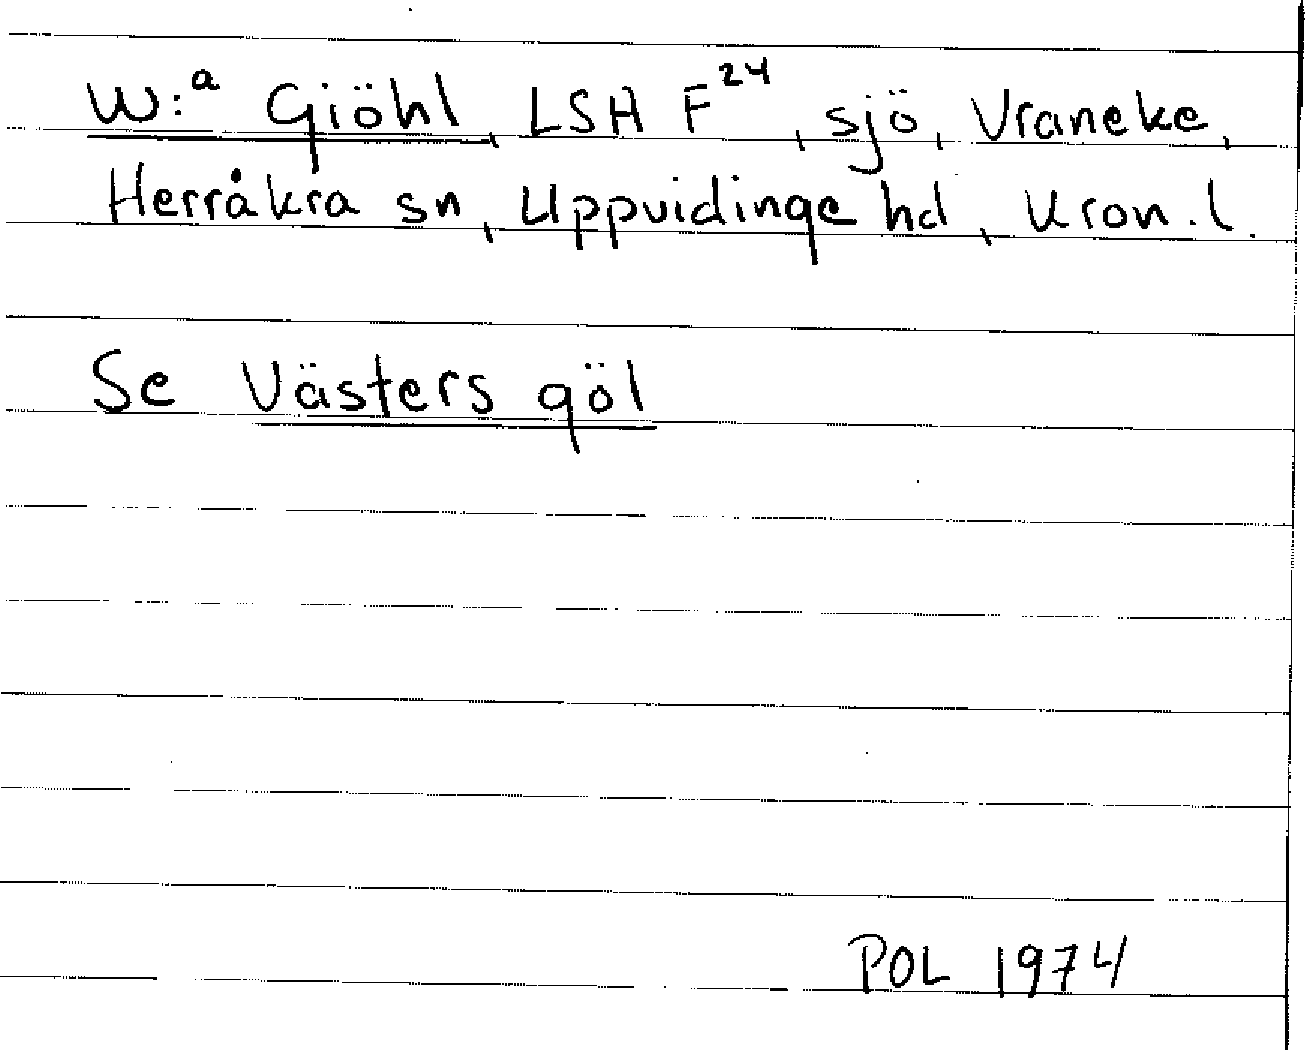 W:a Giöhl, LSH F24, sjö, Vraneke,
Herråkra sn, Uppvidinge hd, Kron. l.
Se Västers göl
POL 1974